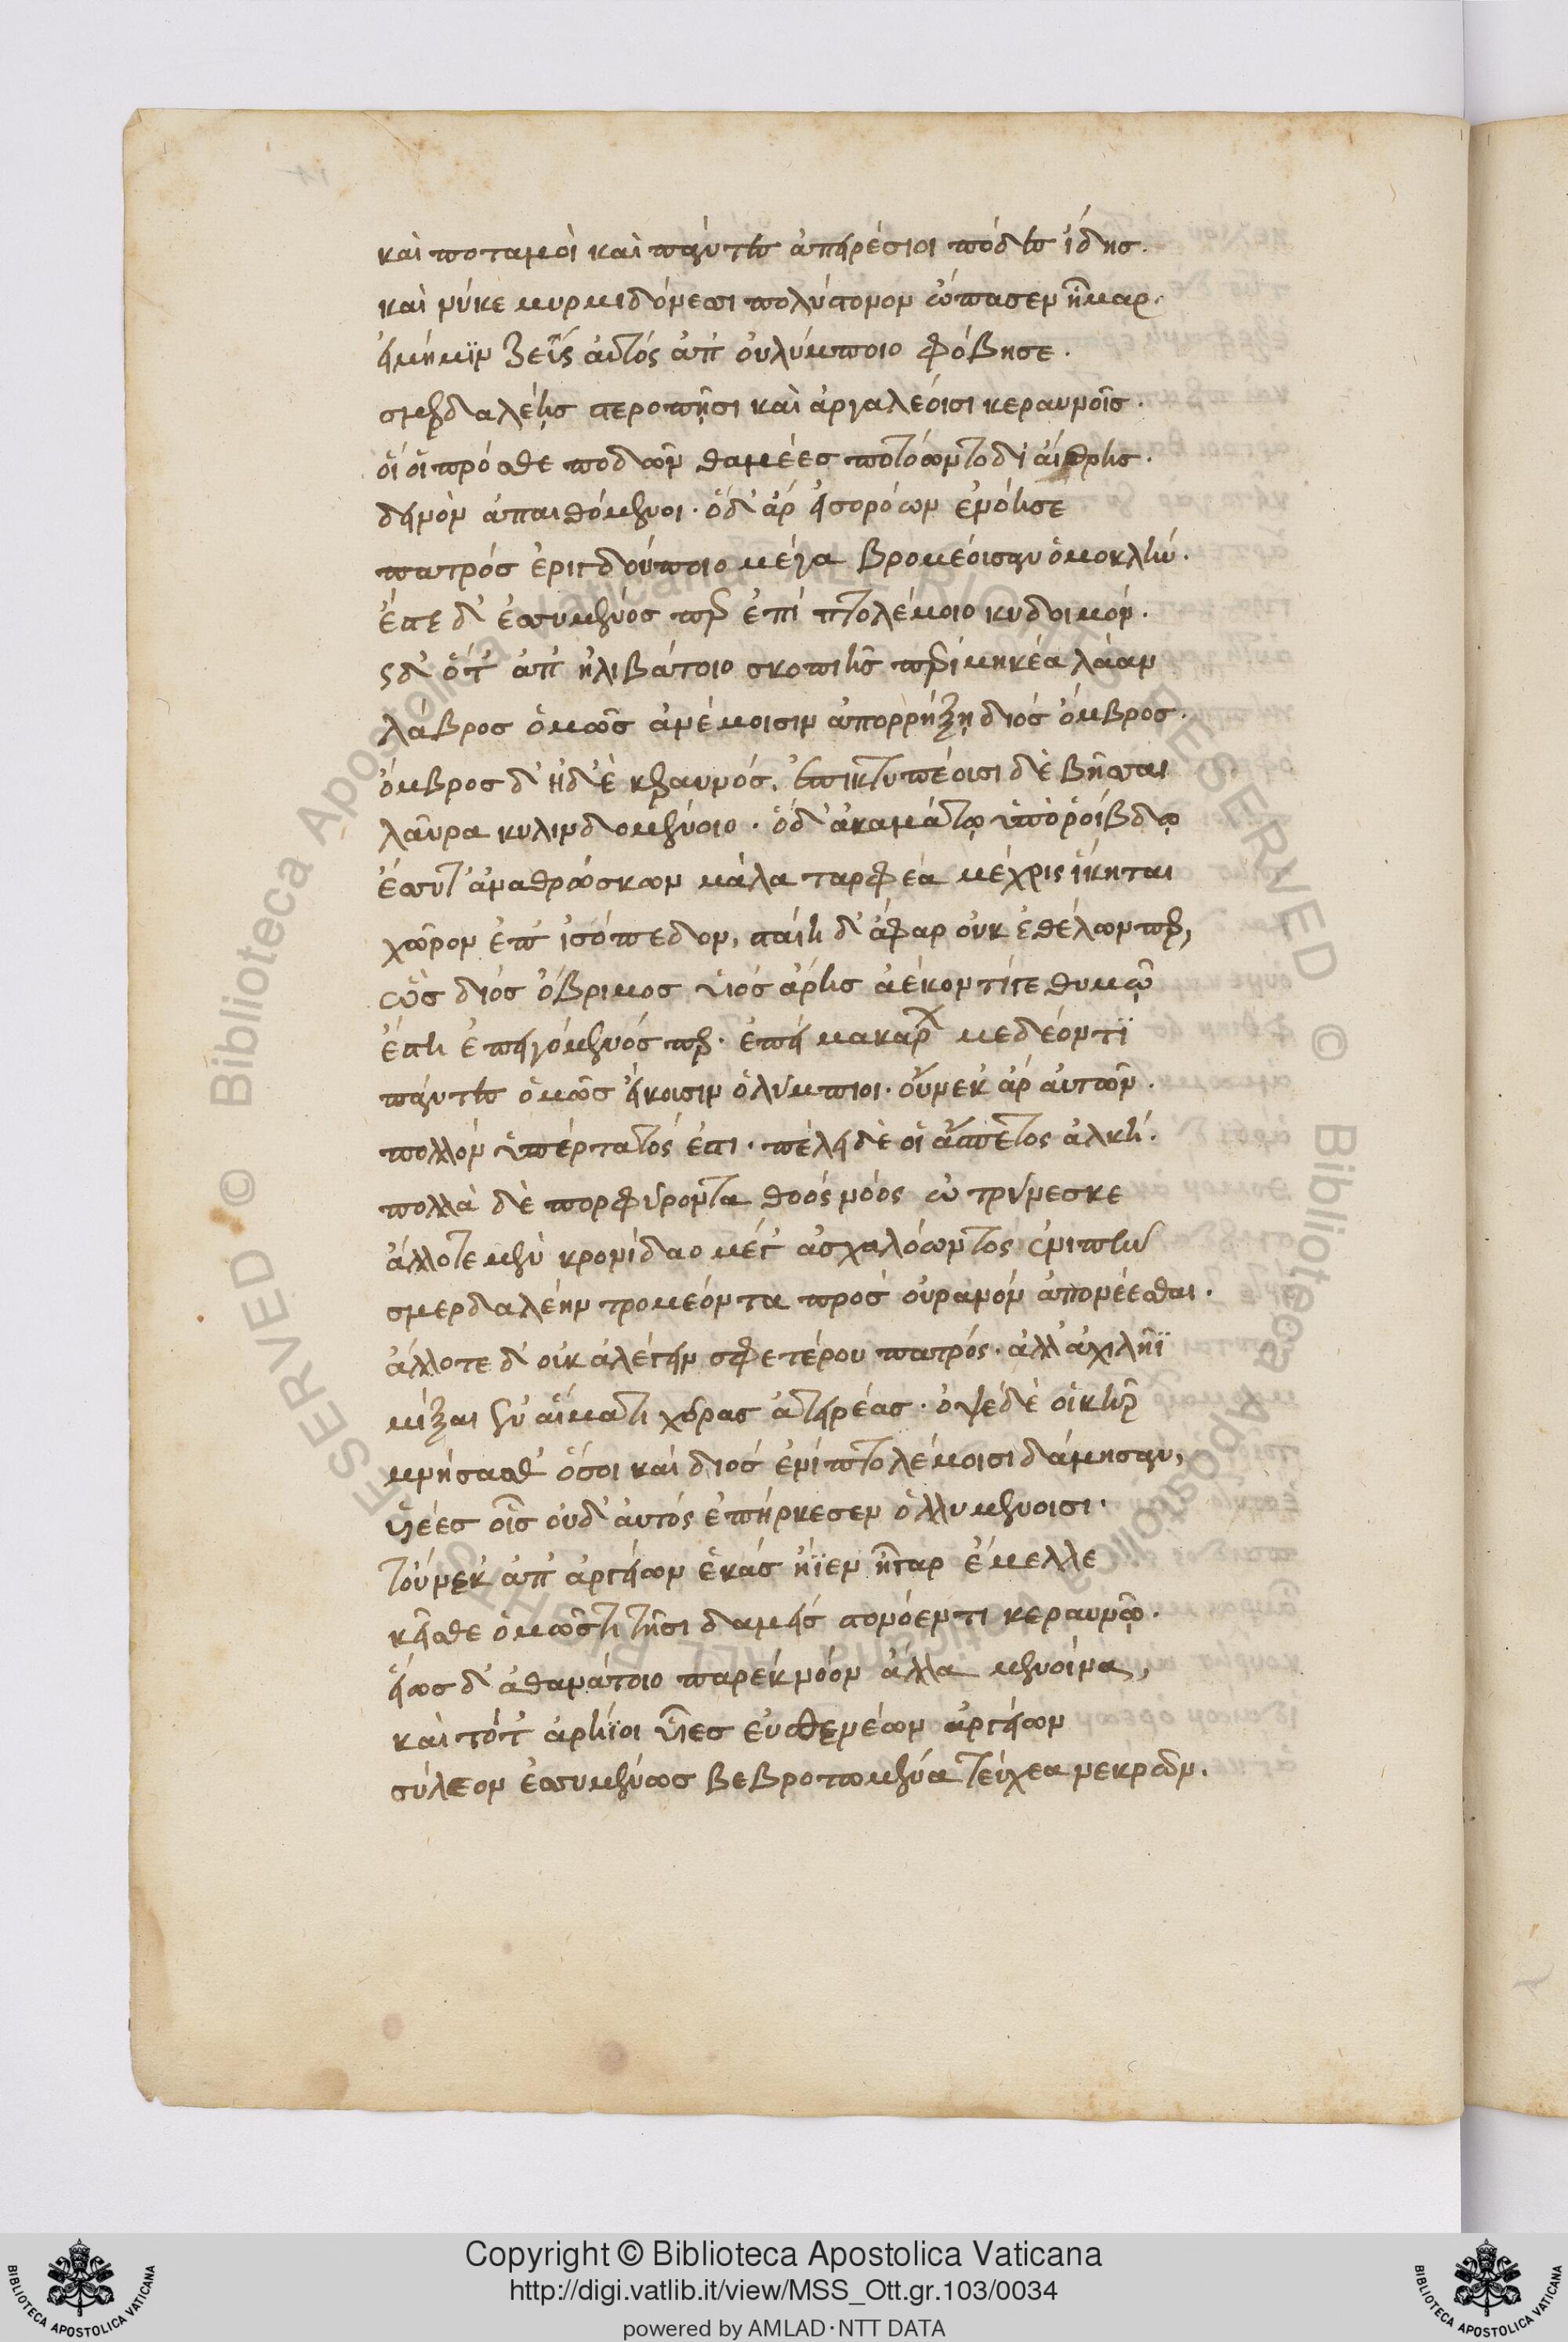 καὶ ποταμοὶ καὶ πάντες ἀπειρέσιοι πόδες ἴδης.
καὶ νύκε μυρμιδόνεσσι πολύστονον ὤπασεν ἦμαρ.
εἰμήμιν ζεὺς αὐτός ἀπ' οὐλύμποιο φόβησε.
σμερδαλέης στεροπῆσι καὶ ἀργαλέοισι κεραυνοῖς.
οἵ οἱ πρόσθε ποδῶν θαμέες ποτόωντο δι' αἴθρης.
δεινὸν ἀπαιθόμενοι. ὁδ' ἀρ' εἰσορόων ἐνόησε
πατρός ἐριγδούποιο μέγα βρομέοισαν ὁμοκλήν.
ἔστη δ' ἐσσυμενός περ ἐπί πτολέμοιο κυδοιμόν.
ὡς δ' ὅτ' ἀπ' ἠλιβάτοιο σκοπιῆς περιμηκέα λᾶαν
λάβρος ὁμῶς ἀνέμοισιν ἀπορρήξῃ διός ὄμβρος.
ὄμβρος δ' ἠδ' ἐ κεραυνός. ἐπικτυπέοισι δὲ βῆσσαι
λαῦρα κυλινδομένοιο. ὁδ' ἀκαμάτῳ ὑπὸ ῥοίβδῳ
ἔσσυτ' ἀναθρώσκων μάλα ταρφέα μέχρις ἵκηται
χῶρον ἐπ' ἰσόπεδον, σταίη δ' ἄφαρ οὐκ ἐθέλων περ,
ὣς διός ὄβριμος υἱός ἄρης ἀέκοντί γε θυμῷ
ἔστη ἐπειγόμενός περ. ἐπεὶ μακάρων μεδέοντϊ
πάντες ὁμῶς εἴκοισιν ὀλύμπιοι. οὕνεκ' ἀρ' αὐτῶν.
πολλόν ὑπέρτατός ἐστι. πέλει δὲ οἱ ἄσπετος ἀλκή.
πολλὰ δὲ πορφύροντα θοός νόος ὠτρύνεσκε
ἄλλοτε μὲν κρονίδαο μέγ' ἀσχαλόωντος ἐνιπὴν
σμερδαλέην τρομέοντα πρός οὐρανόν ἀπονέεσθαι.
ἄλλοτε δ' οὐκ ἀλέγειν σφετέρου πατρός. ἀλλ' ἀχιλῆϊ
μίξαι ἐν αἵματι χεῖρας ἀτειρέας. ὀψὲ δὲ οἱ κῆρ
μνήσασθ' ὅσοι καὶ διός ἐνί πτολέμοισι δάμησαν,
υἱέες οἷς οὐδ' αὐτός ἐπήρκεσεν ὀλλυμένοισι.
τοὔνεκ' ἀπ' ἀργείων ἑκάς ἤϊεν ἦ γαρ ἔμελλε
κεῖσθε ὁμῶς τιτῆσι δαμείς στονόεντι κεραυνῷ.
εἵως δ' ἀθανάτοιο παρεκ νόον ἄλλα μενοίνα,
καὶ τότ' ἀρήϊοι υἷες ἐυσθενέων ἀργείων
σύλεον ἐσσυμένως βεβροτωμένα τεύχεα νεκρῶν.
Copyright © Biblioteca Apostolica Vaticana
http://digi.vatlib.it/view/MSS_Ott.gr.103/0034
powered by AMLAD·NTT DATA